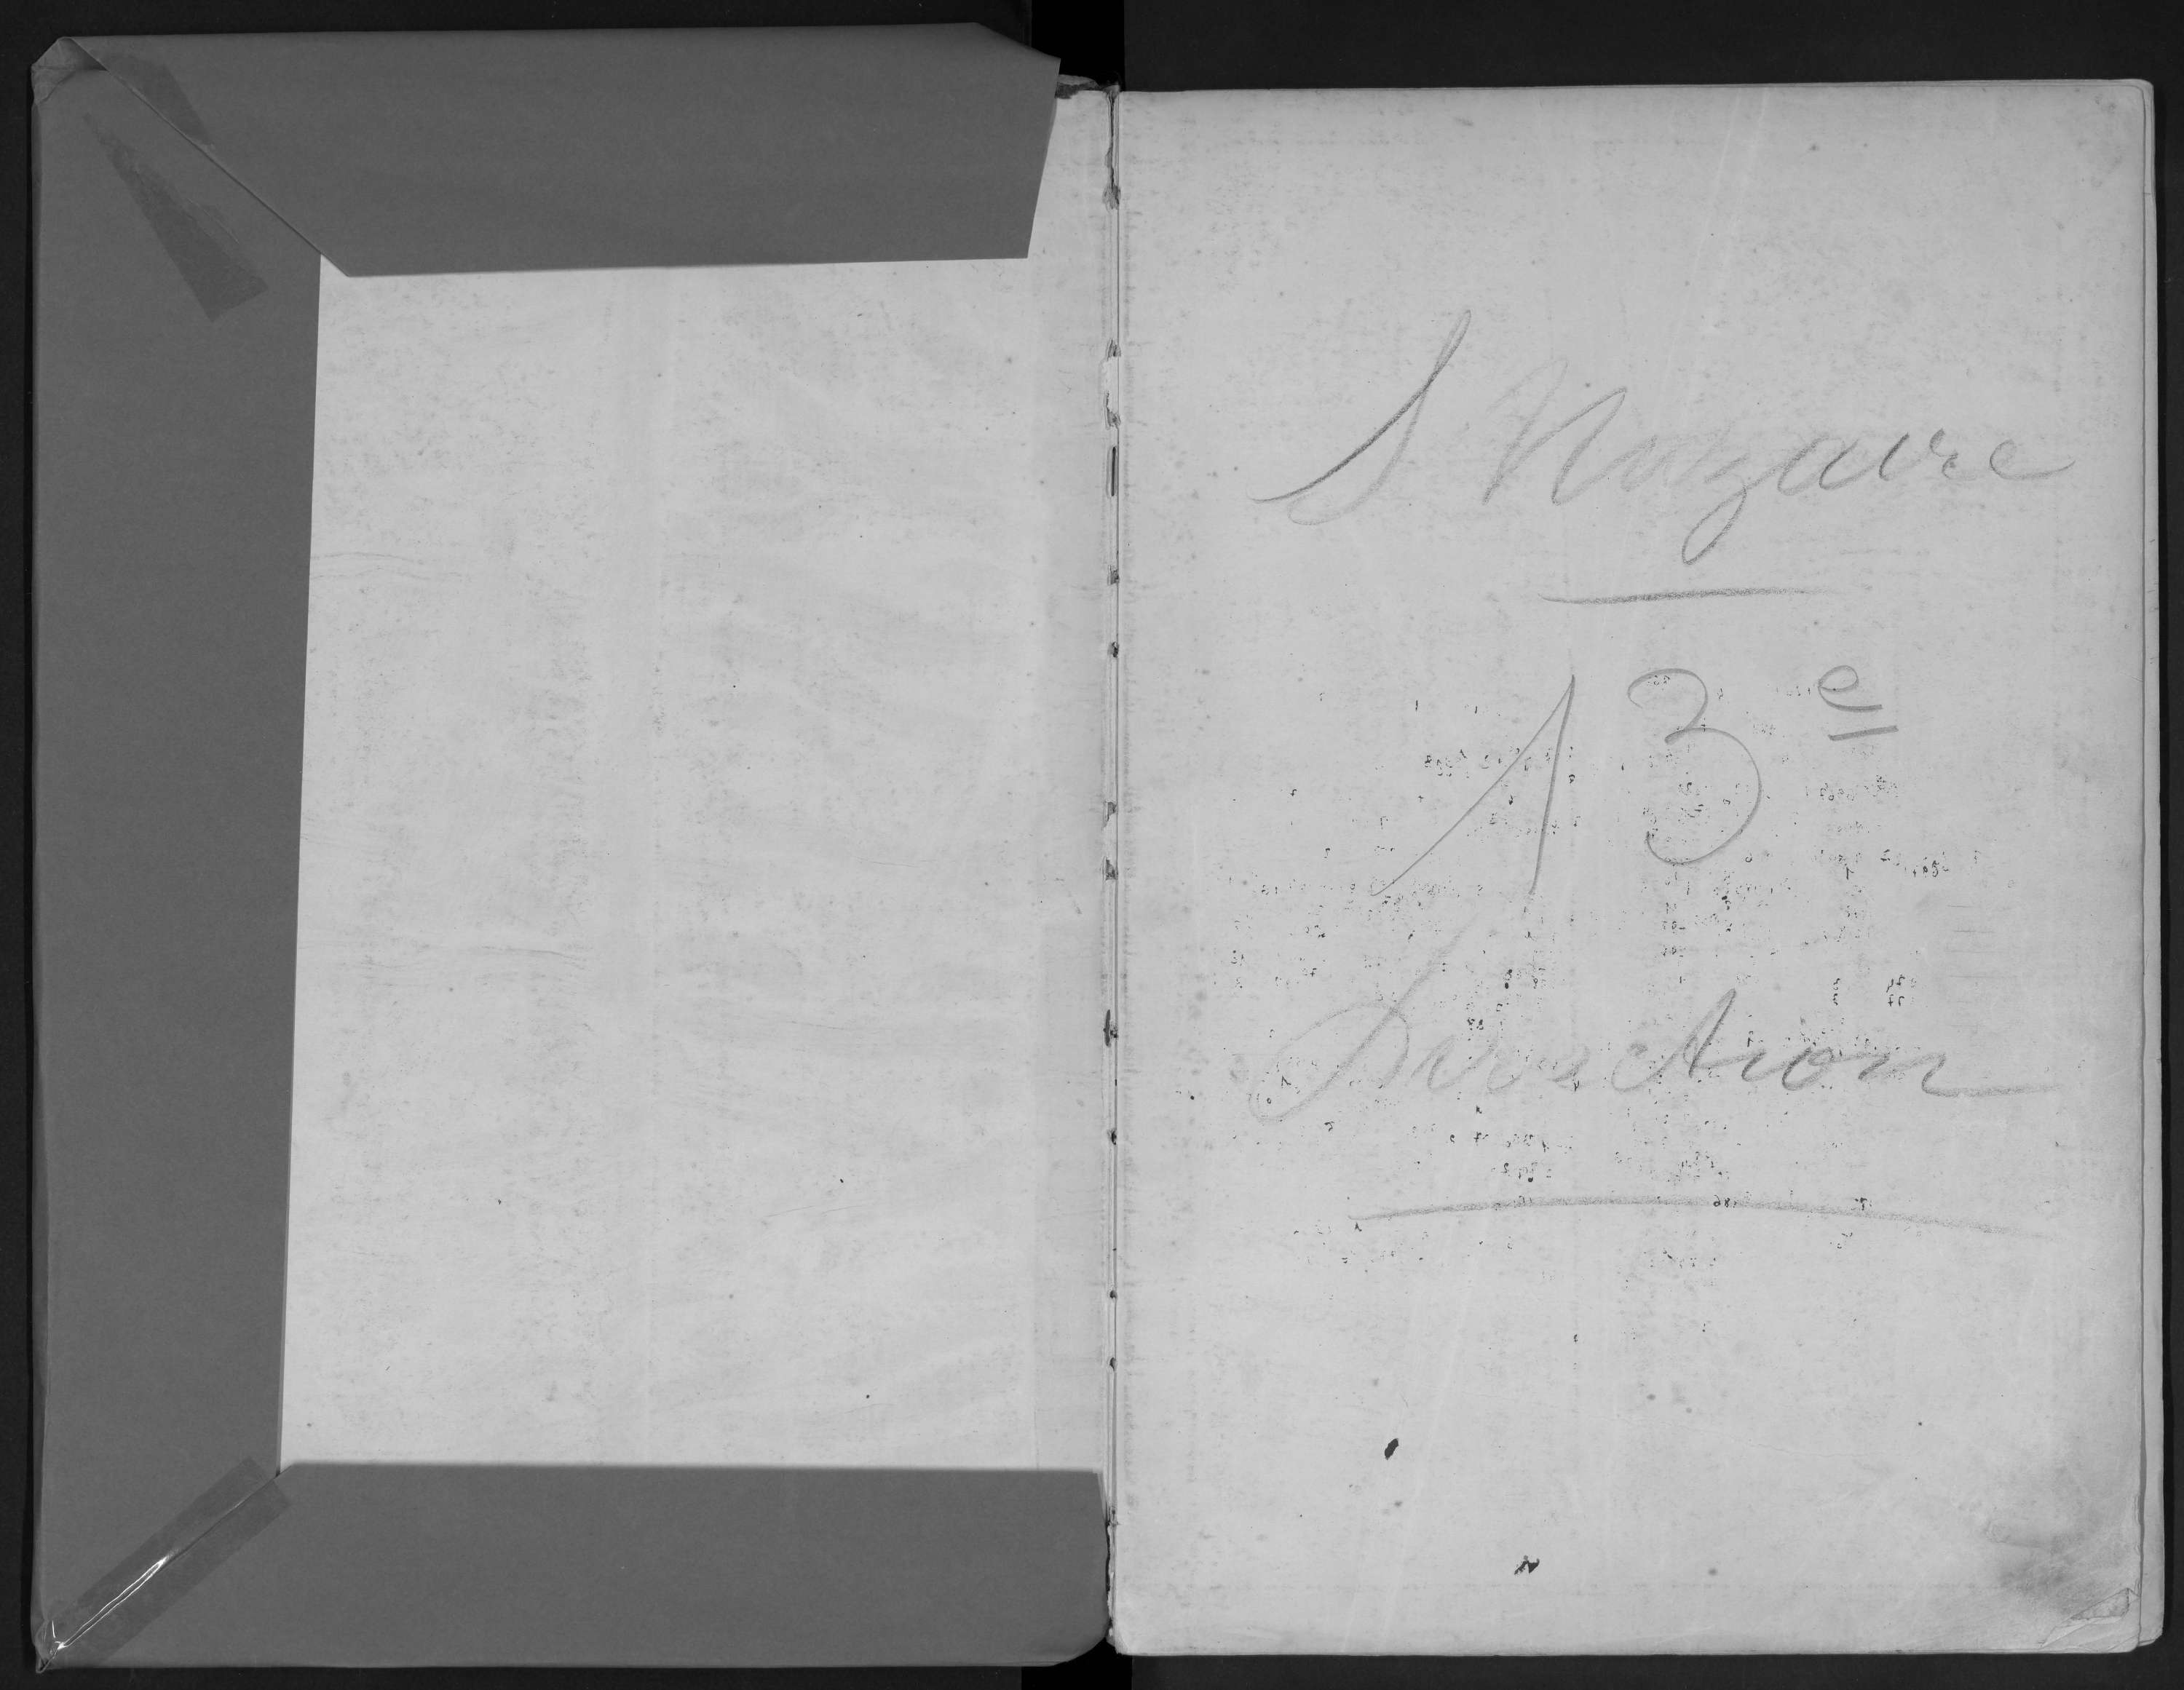 S Nazaire
13e
Direction